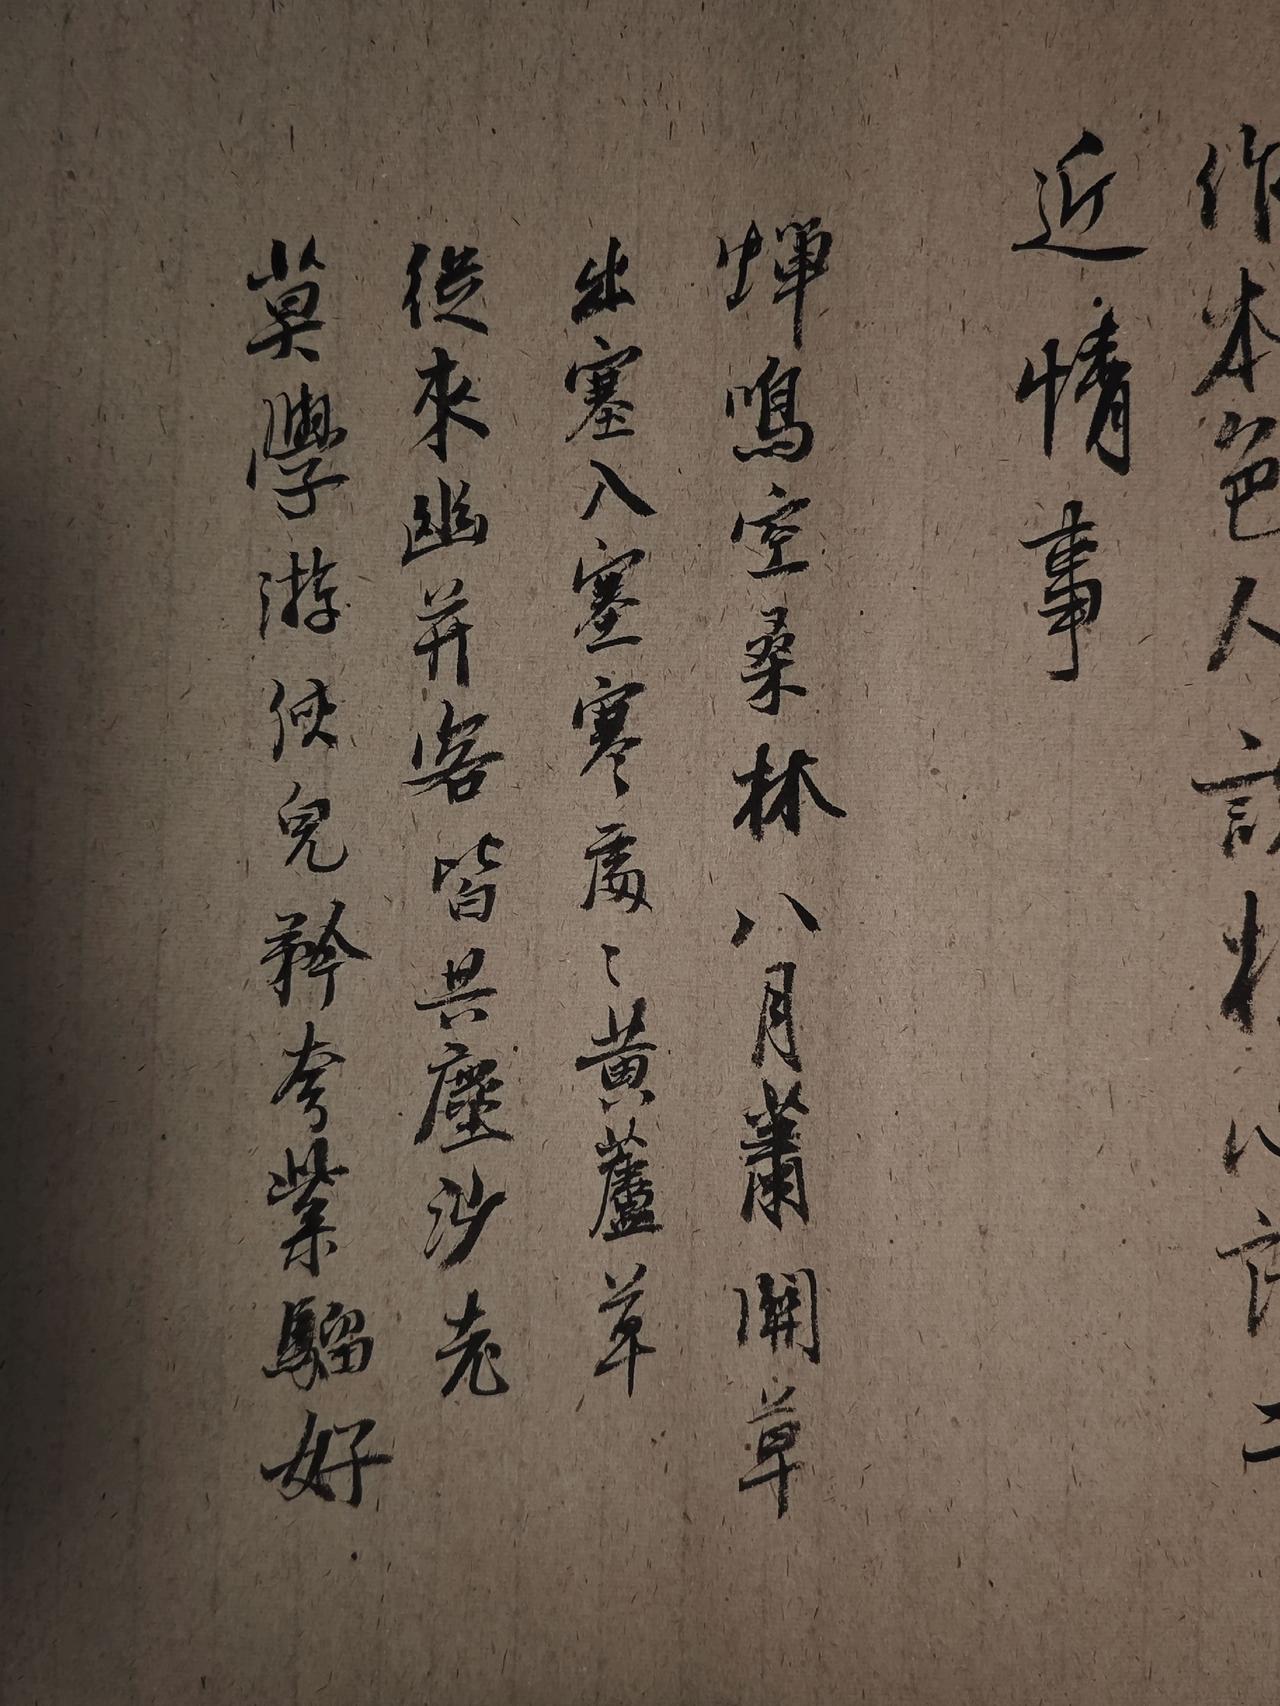 作本色人
近情事
蟬鳴空桑林八月蕭關草
出塞入塞寒處〻黃蘆草
從來幽并客皆共塵沙老
莫學游俠兒矜夸紫騮好